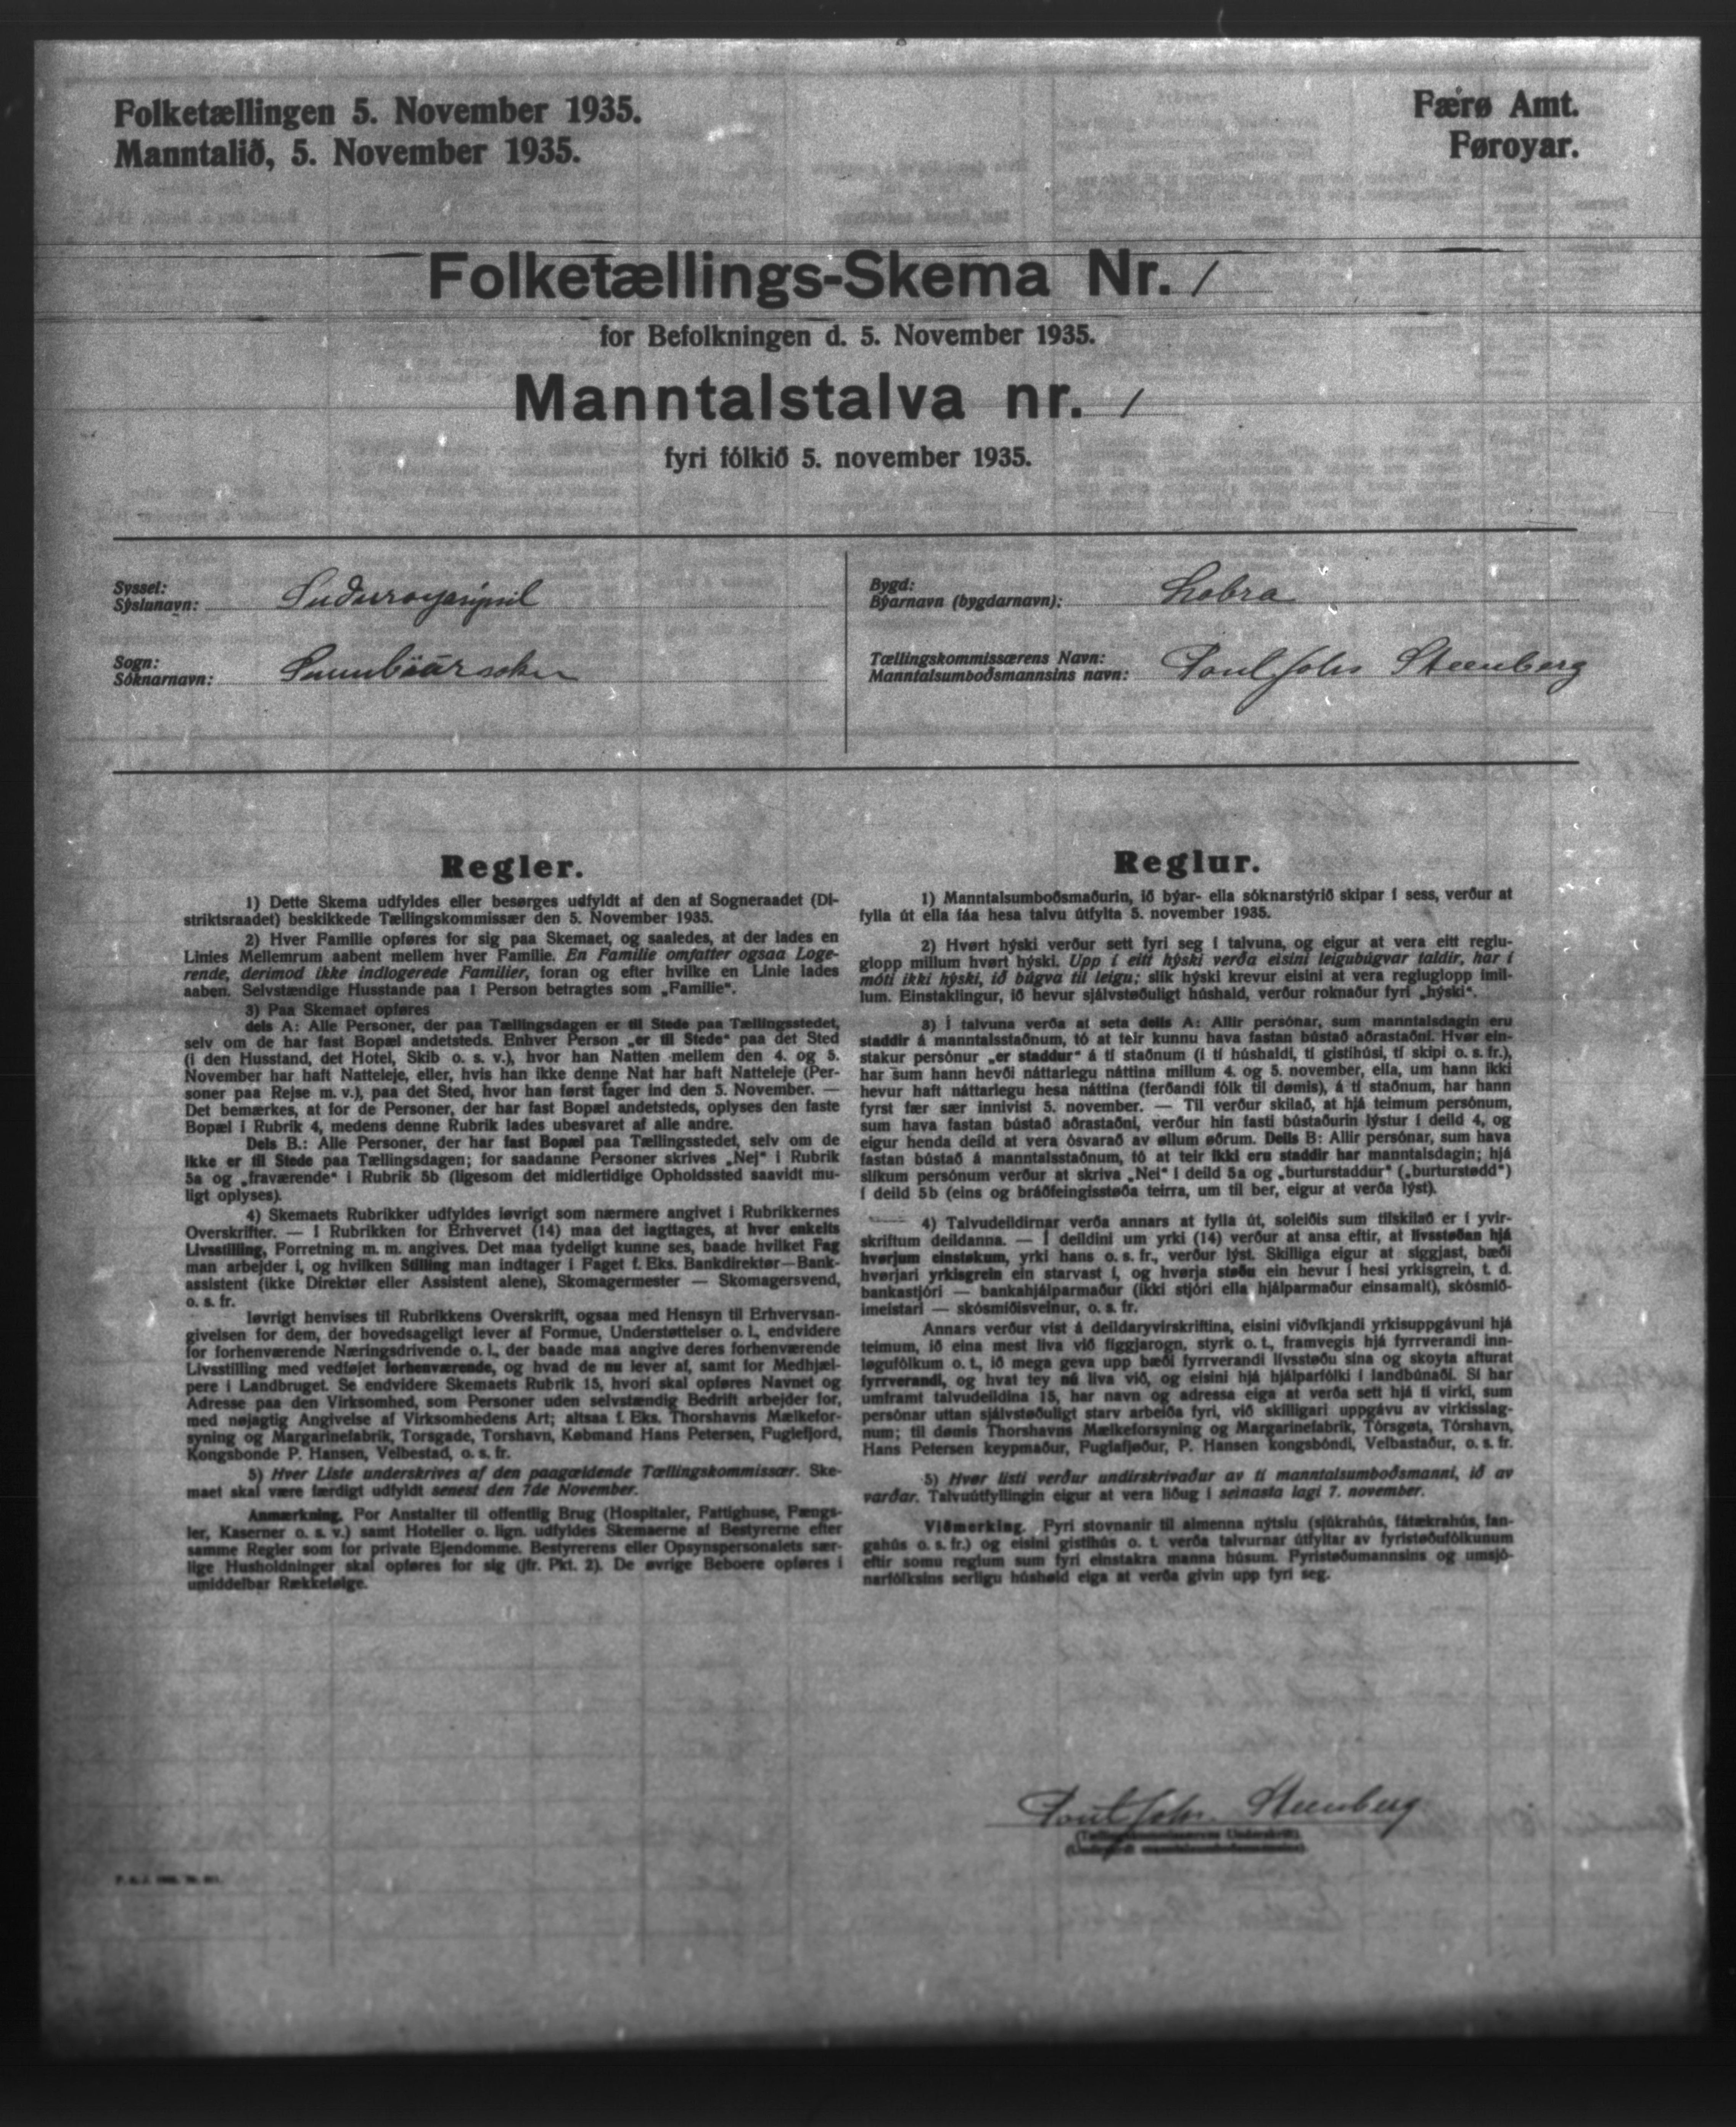 Folketællingen 5. November 1935.
Manntalið, 5. November 1935.
Færø Amt.
Føroyar.
Folketællings-Skema Nr. 1
for Befolkningen d. 5. November 1935.
Manntalstalva nr. 1
fyri fólkið 5. november 1935.
Syssel:
Sýslunavn:
Sogn:
Sóknarnavn: Sunnböar sokn
Bygd:
Býarnavn (bygdarnavn): Lobra
Tællingskommissærens Navn:
Manntalsumboðsmannsins navn: Poul Johs Steenberg
Regler.
1) Dette Skema udfyldes eller besørges udfyldt af den af Sogneraadet (Di-
striktsraadet) beskikkede Tællingskommissær den 5. November 1935.
2) Hver Familie opføres for sig paa Skemaet, og saaledes, at der lades en
Linies Mellemrum aabent mellem hver Familie. En Familie omfatter ogsaa Loge-
rende, derimod ikke indlogerede Familier, foran og efter hvilke en Linie lades
aaben. Selvstændige Husstande paa 1 Person betragtes som „Familie“.
3) Paa Skemaet opføres
dels A: Alle Personer, der paa Tællingsdagen er til Stede paa Tællingsstedet,
selv om de har fast Bopæl andetsteds. Enhver Person „er til Stede“ paa det Sted
(i den Husstand, det Hotel, Skib o. s. v.), hvor han Natten mellem den 4. og 5.
November har haft Natteleje, eller, hvis han ikke denne Nat har haft Natteleje (Per-
soner paa Rejse m. v.), paa det Sted, hvor han først tager ind den 5. November. —
Det bemærkes, at for de Personer, der har fast Bopæl andetsteds, oplyses den faste
Bopæl i Rubrik 4, medens denne Rubrik lades ubesvaret af alle andre.
Dels B.: Alle Personer, der har fast Bopæl paa Tællingsstedet, selv om de
ikke er til Stede paa Tællingsdagen; for saadanne Personer skrives „Nej“ i Rubrik
5a og „fraværende“ i Rubrik 5b (ligesom det midlertidige Opholdssted saavidt mu-
ligt oplyses).
4) Skemaets Rubrikker udfyldes løvrigt som nærmere angivet i Rubrikkernes
Overskrifter. — I Rubrikken for Erhvervet (14) maa det iagttages, at hver enkelts
Livsstilling, Forretning m. m. angives. Det maa tydeligt kunne ses, baade hvilket Fag
man arbejder i, og hvilken Stilling man indtager i Faget f. Eks. Bankdirektør—Bank-
assistent (ikke Direktør eller Assistent alene), Skomagermester — Skomagersvend,
o. s. fr.
Iøvrigt henvises til Rubrikkens Overskrift, ogsaa med Hensyn til Erhvervsan-
givelsen for dem, der hovedsageligt lever af Formue, Understøttelser o. l., endvidere
for forhenværende Næringsdrivende o. l., der baade maa angive deres forhenværende
Livsstilling med vedføjet forhenværende, og hvad de nu lever af, samt for Medhjæl-
pere i Landbruget. Se endvidere Skemaets Rubrik 15, hvori skal opføres Navnet og
Adresse paa den Virksomhed, som Personer uden selvstændig Bedrift arbejder for,
med nøjagtig Angivelse af Virksomhedens Art; altsaa f. Eks. Thorshavns Mælkefor-
syning og Margarinefabrik, Torsgade, Torshavn, Købmand Hans Petersen, Fuglefjord,
Kongsbonde P. Hansen, Velbestad, o. s. fr.
5) Hver Liste underskrives af den paagældende Tællingskommissær. Ske-
maet skal være færdigt udfyldt senest den 7de November.
Anmærkning. For Anstalter til offentlig Brug (Hospitaler, Fattighuse, Fængs-
ler, Kaserner o. s. v.) samt Hoteller o. lign. udfyldes Skemaerne af Bestyrerne efter
samme Regler som for private Ejendomme. Bestyrerens eller Opsynspersonalets sær-
lige Husholdninger skal opføres for sig (jfr. Pkt. 2). De øvrige Beboere opføres i
umiddelbar Rækkefølge.
Reglur.
1) Manntalsumboðsmaðurin, ið býar- ella sóknarstýrið skipar í sess, verður at
fylla út ella fáa hesa talvu útfylta 5. november 1935.
2) Hvørt hýski verður sett fyri seg í talvuna, og eigur at vera eitt reglu-
glopp millum hvørt hýski. Upp í eitt hýski verða eisini leigubúgvar taldir, har í
móti ikki hýski, ið búgva til leigu; slík hýski krevur eisini at vera regluglopp imil-
lum. Einstaklingur, ið hevur sjálvstøðuligt húshald, verður roknaður fyri „hýski“.
3) Í talvuna verða at seta dells A: Allir persónar, sum manntalsdagin eru
staddir á manntalsstaðnum, tó at teir kunnu hava fastan bústað aðrastaðni. Hvør ein-
stakur persónur „er staddur“ á tí staðnum (í tí húshaldi, tí gistihúsi, tí skipi o. s. fr.),
har sum hann hevði náttarlegu náttina millum 4. og 5. november, ella, um hann ikki
hevur haft náttarlegu hesa náttina (ferðandi fólk til dømis), á tí staðnum, har hann
fyrst fær sær innivist 5. november. — Til verður skilað, at hjá teimum persónum,
sum hava fastan bústað aðrastaðni, verður hin fasti bústaðurin lýstur í deild 4, og
eigur henda deild at vera ósvarað av øllum øðrum. Dells B: Allir persónar, sum hava
fastan bústað á manntalsstaðnum, tó at teir ikki eru staddir har manntalsdagin; hjá
slíkum persónum verður at skriva „Nei“ í deild 5a og „burturstaddur“ („burturstødd“)
í deild 5b (eins og bráðfeingisstøða teirra, um til ber, eigur at verða lýst).
4) Talvudeildirnar verða annars at fylla út, soleiðis sum tilskilað er í yvir-
skriftum deildanna. — Í deildini um yrki (14) verður at ansa eftir, at livsstøðan hjá
hvørjum einstøkum, yrki hans o. s. fr., verður lýst. Skilliga eigur at siggjast, bæði
hvørjari yrkisgrein ein starvast í, og hvørja støðu ein hevur í hesi yrkisgrein, t. d.
bankastjóri — bankahjálparmaður (ikki stjóri ella hjálparmaður einsamalt), skósmið-
imeistari — skósmiðisveinur, o. s. fr.
Annars verður víst á deildaryvirskriftina, eisini viðvíkjandi yrkisuppgávuni hjá
teimum, ið eina mest liva við figgjarogn, styrk o. t., framvegis hjá fyrrverandi inn-
løgufólkum o. t., ið mega geva upp bæði fyrrverandi lívsstøðu sína og skoyta afturat
fyrrverandi, og hvat tey nú liva við, og eisini hjá hjálparfólki í landbúnaði. Sí har
umframt talvudeildina 15, har navn og adressa eiga at verða sett hjá tí virki, sum
persónar uttan sjálvstøðuligt starv arbeiða fyri, við skilligari uppgávu av virkisslag-
num; til dømis Thorshavns Mælkeforsyning og Margarinefabrik, Tórsgøta, Tórshavn,
Hans Petersen keypmaður, Fuglafjøður, P. Hansen kongsbóndi, Velbastaður, o. s. fr.
5) Hvør listi verður undirskrivaður av tí manntalsumboðsmanni, ið av
varðar. Talvuútfyllingin eigur at vera liðug í seinasta lagi 7. november.
Viðmerking. Fyri stovnanir til almenna nýtslu (sjúkrahús, fátækrahús, fan-
gahús o. s. fr.) og eisini gistihús o. t. verða talvurnar útfyltar av fyristøðufólkunum
eftir somu reglum sum fyri einstakra manna húsum. Fyristøðumannsins og umsjó-
narfólksins serligu húshøld eiga at verða givin upp fyri seg.
Poul Johs. Steenberg
(Tællingskommissærens Underskrift).